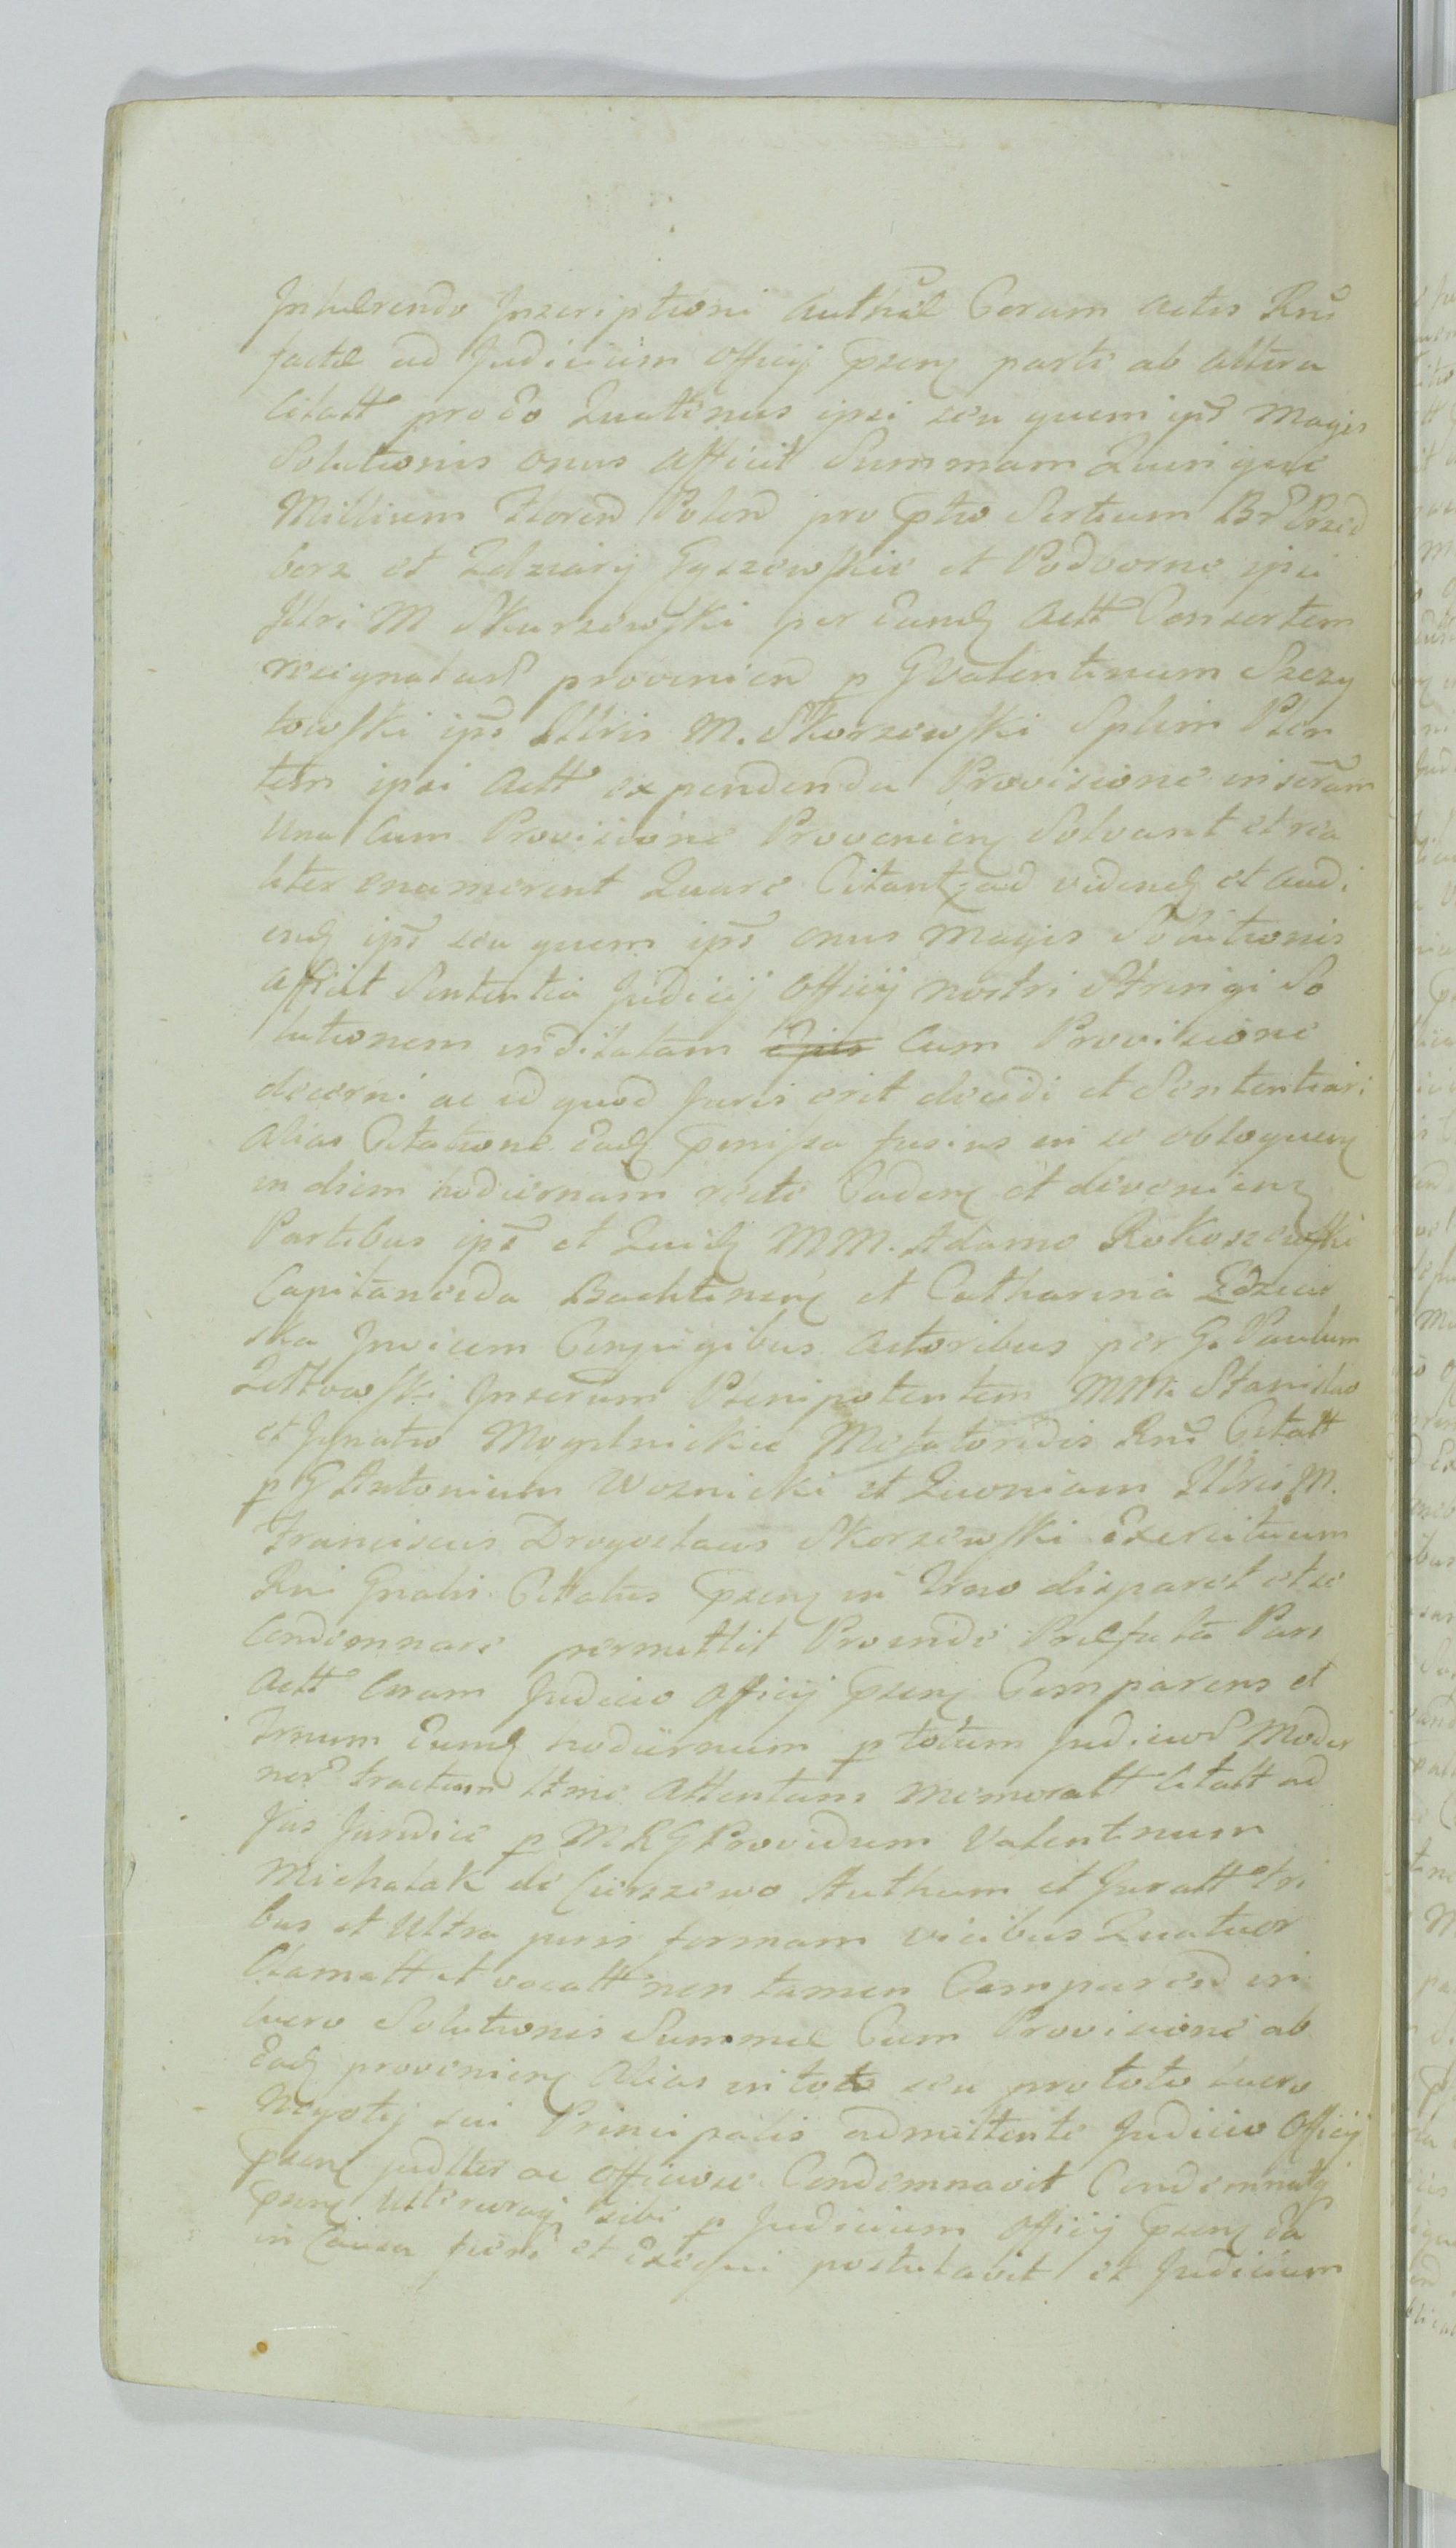 Inhærendo Inscriptioni Authæ Coram actis Rnī
factæ ad Judicium Officij pseng parte ab altera
Citatt pro eo Quatenus ipsi seu quem ips Magis
Solutionis onus afficit Summam Quinque
Millium Floren Polon pro ptio Sortium Br Przed
borz et Zdziary Gyszewskie et Podborne ipsi
Illri M Skurzewski per Eund Actt Consortem
resignatar provenien p G Valentinum Szczy
towski ips Illris M. Skorzewski Splem Plen
tem ipsi Actt expendenda Provisione inseram
Una Cum Provisione Provenien Solvant et rea
liter enumerent Quare Citant ad videnḋ et audi
end ips seu quem ips onus Magis Solutionis
afficit Sententia Judicij Officij nostri Stringi So
lutionem inditatam Cum Provisione
decerni ac id quod Juris erit decidi et Sententiari
alias Citatione Ead fusius in se obloquen
in diem hodiernam recte Caden et devenien
Partibus ips et Quid MM. Adamo Rokoszewski
Capitaneida et Catharina
ska Invicem Conjugibus actoribus per G. Paulum
Zettowski Plenipotentem MM. Stanislao
et Ignatio Mogelnickie Metatoridis Rni Citatt
p G Antonium Woznicki et Quoniam Illris M.
Franciscus Drogoslaus Skorzewski Exercituum
Rni Gnalis Citatus psen in Trno disparet et se
Condemnare permittit Proinde Præfata Pars
Actt Coram Judicio Officij psen Comparens et
Trnum Eund hodiernum p totum Judicior Moder
nor tractum ltme attentans memoratt Citatt ad
Jus Juridice p M R G Providum Valentinum
Michalak de Authum et Juratt tri
bus et Ultra juris formam vicibus Quatuor
Clamatt et vocatt non tamen Comparen in
lucro Solutionis Summæ Cum Provisione ab
Ead provenien alias in toto seu pro toto lucro
Negotij sui Principalis admittente Judicio Officij
psen judlter ac Officiose Condemnavit
psen sibi p Judicium Officij psen Ea
in Causa fieri et Exequi postulavit et Judicium